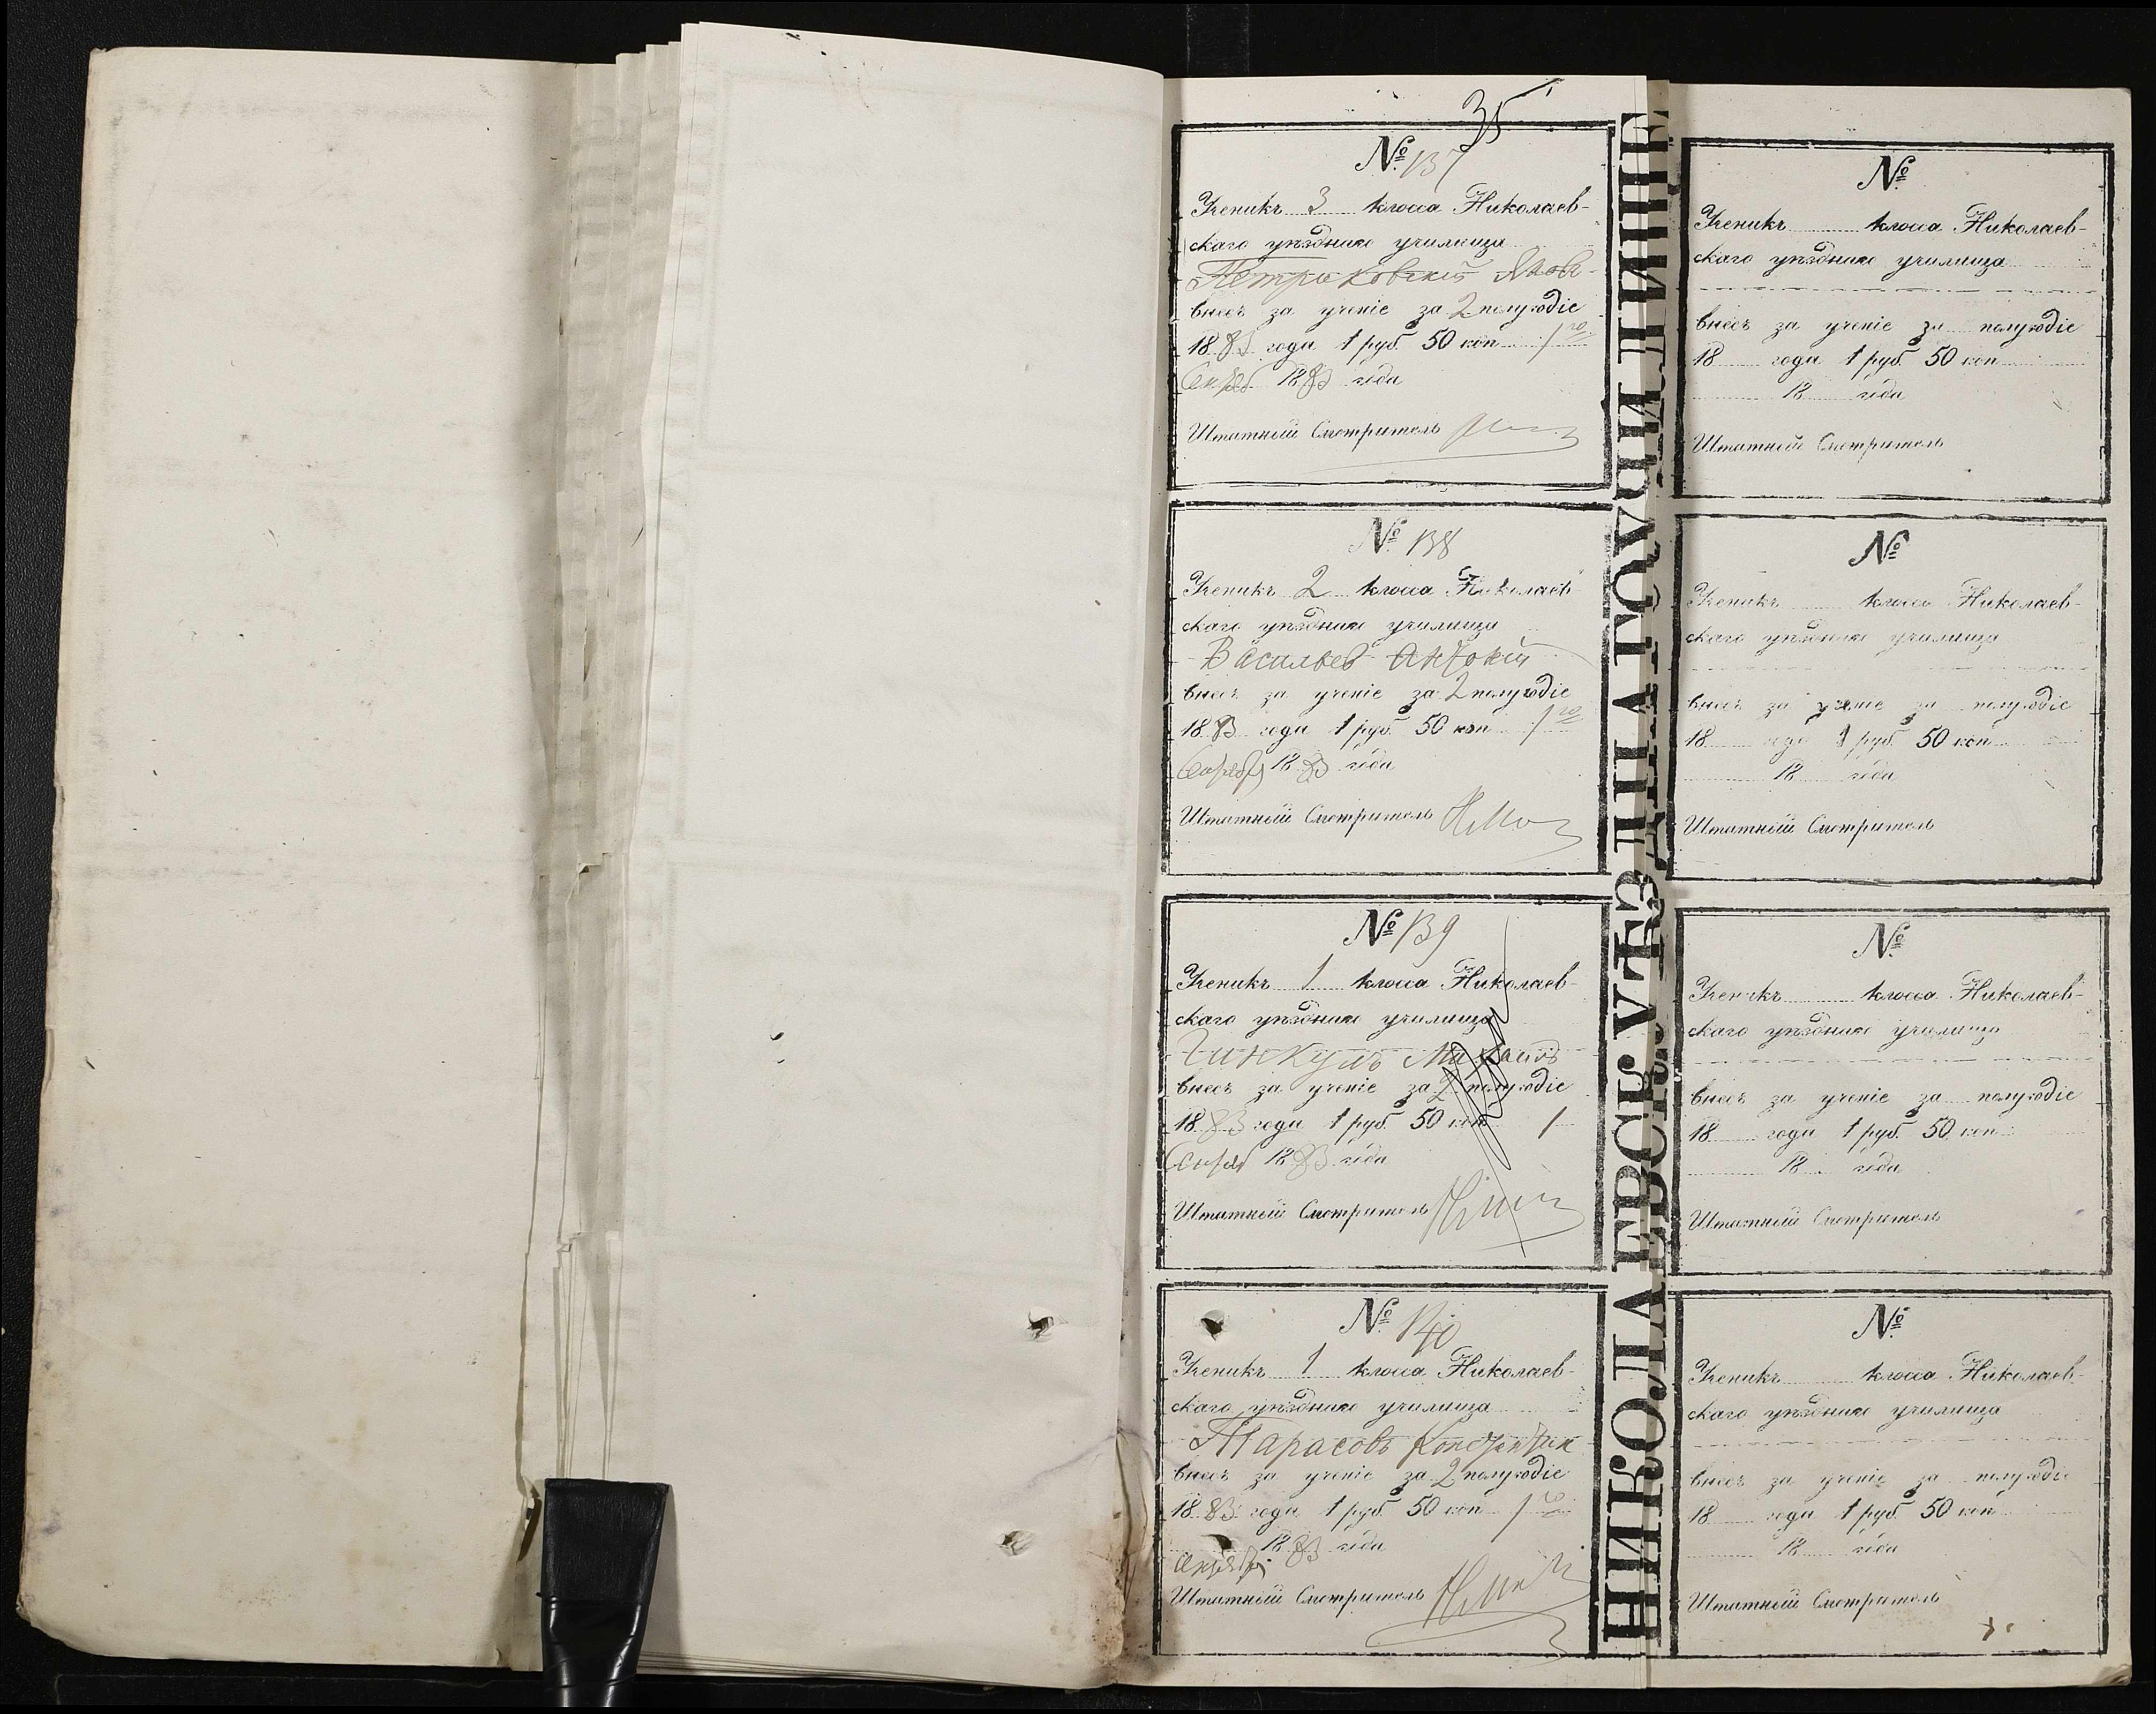 35
№ 137
Ученикъ 3 класса Николаев-
скаго уѣзднаго училища
Петраковскій Яков
внесъ за ученіе за 2 полугодіе
1883 года 1 руб. 50 коп. 1го
Октяб 1883 года
Штатный Смотритель
№ 138
Ученикъ 2 класса Николаев-
скаго уѣзднаго училища
Васильев Антоній
внесъ за ученіе за 2 полугодіе
1883 года 1 руб. 50 коп. 1го
Октября 1883 года
Штатный Смотритель
№ 139
Ученикъ 1 класса Николаев-
скаго уѣзднаго училища
Гинкулъ
внесъ за ученіе за 2 полугодіе
1883 года 1 руб. 50 коп. 1
Октяб 1883 года
Штатный Смотритель
№ 140
Ученикъ 1 класса Николаев-
скаго уѣзднаго училища
Тарасовъ Константин
внесъ за ученіе за 2 полугодіе
1883 года 1 руб. 50 коп. 1го
Октября 1883 года
Штатный Смотритель
НИКОЛАЕВСК. УѢЗДНАГО УЧИЛИЩЕ
№
Ученикъ класса Николаев-
скаго уѣзднаго училища
внесъ за ученіе за полугодіе
18 года 1 руб. 50 коп.
18 года
Штатный Смотритель
№
Ученикъ класса Николаев-
скаго уѣзднаго училища
внесъ за ученіе за полугодіе
18 года 1 руб. 50 коп.
18 года
Штатный Смотритель
№
Ученикъ класса Николаев-
скаго уѣзднаго училища
внесъ за ученіе за полугодіе
18 года 1 руб. 50 коп.
18 года
Штатный Смотритель
№
Ученикъ класса Николаев-
скаго уѣзднаго училища
внесъ за ученіе за полугодіе
18 года 1 руб. 50 коп.
18 года
Штатный Смотритель